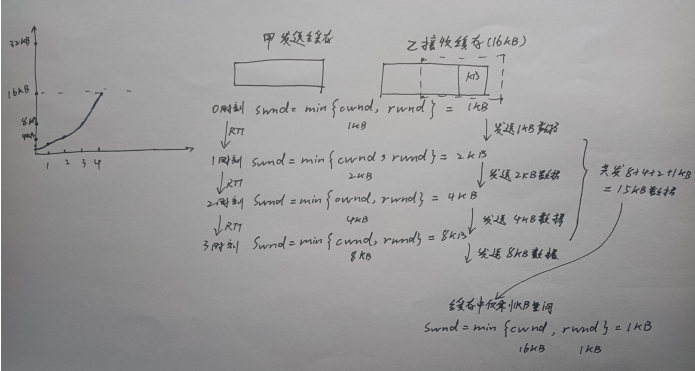 32KB
16KB
8KB
4KB
1 2 3 4
甲发送缓存
乙接收缓存(16KB)
1KB
0时刻 swnd = min{cwnd, rwnd} = 1KB
1KB
↓RTT
↓发送1KB数据
1时刻 swnd = min{cwnd, rwnd} = 2KB
2KB
↓RTT
↓发送2KB数据
2时刻 swnd = min{cwnd, rwnd} = 4KB
4KB
↓RTT
↓发送4KB数据
3时刻 swnd = min{cwnd, rwnd} = 8KB
8KB
↓发送8KB数据
共发8+4+2+1KB
=15KB数据
缓存中仅剩1KB空间
swnd = min{cwnd, rwnd} = 1KB
16KB 1KB